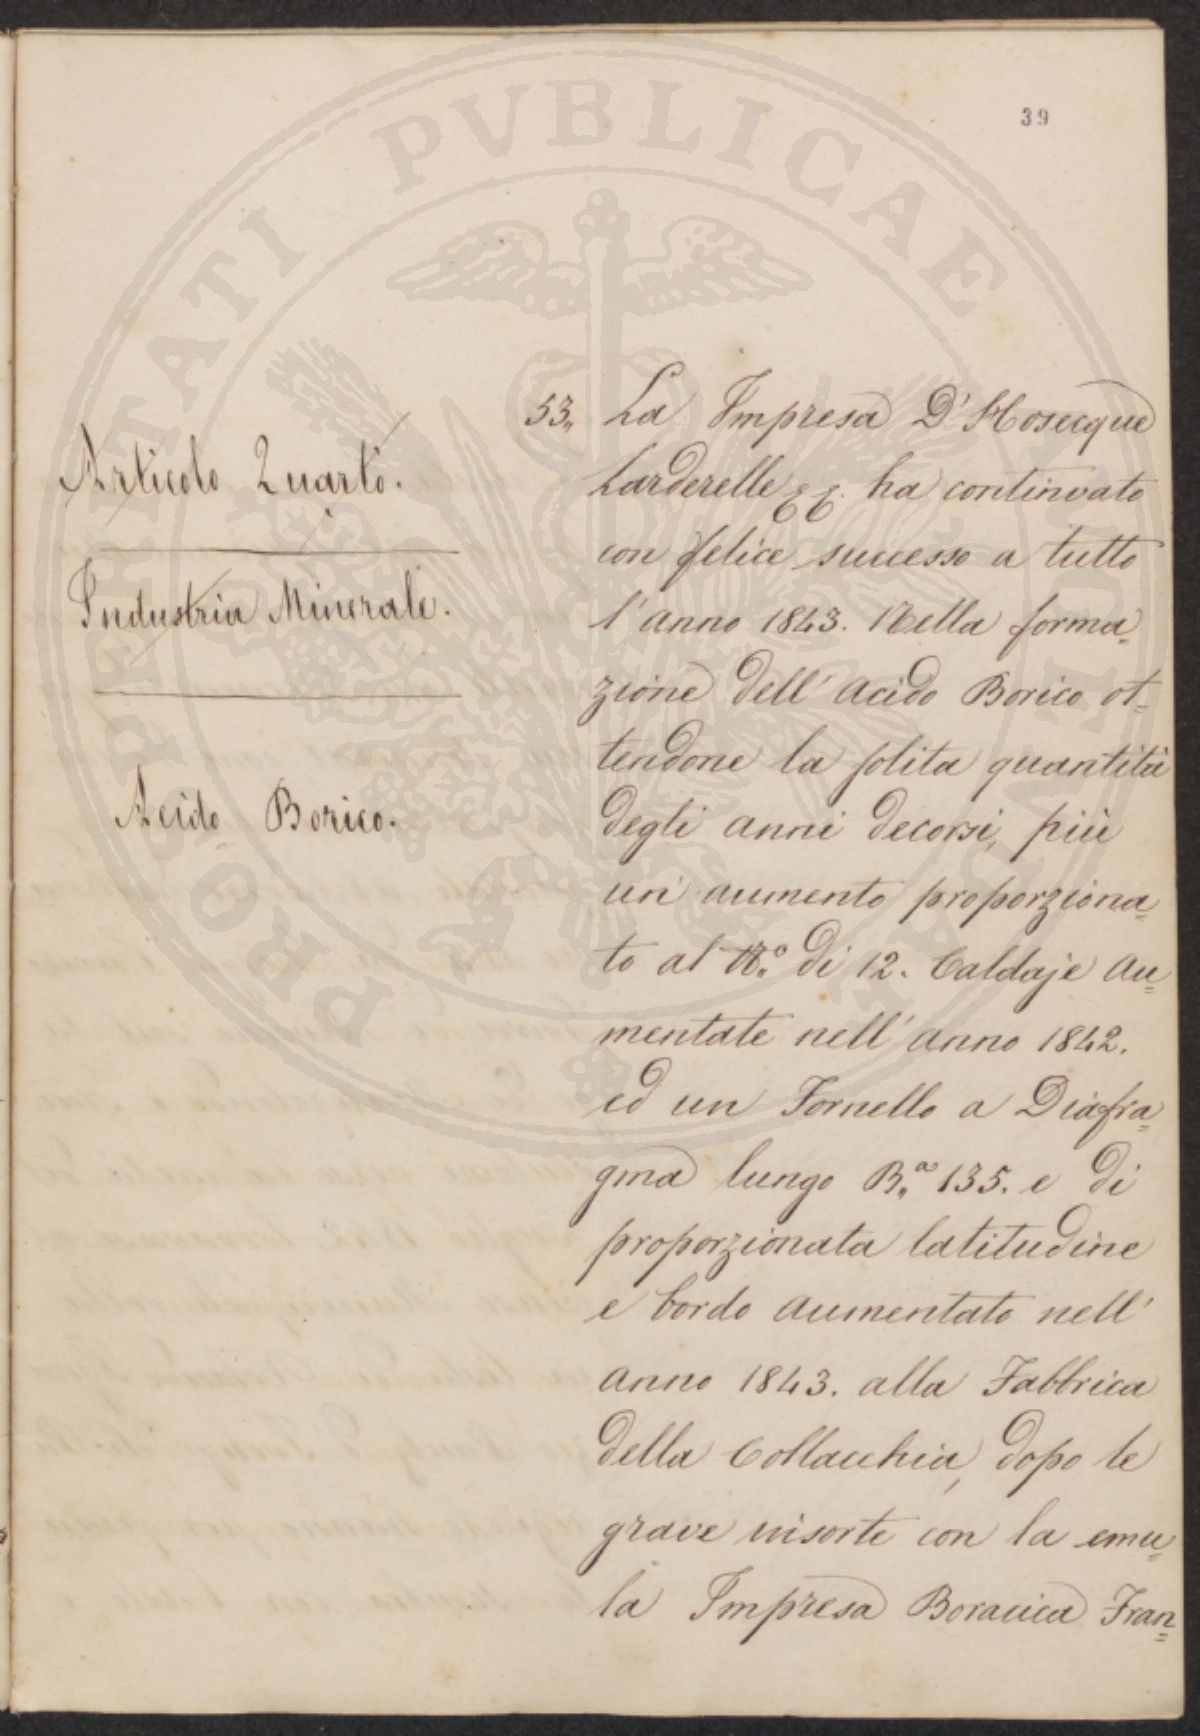 39
Articolo Quarto.
Industria Minerale.
Acido Borico.
53, La Impresa D'Hosecque
Larderelle ha continvato
con felice successo a tutto
l'anno 1843. Nella forma=
zione dell'acido Borico ot=
tendone la solita quantità
degli anni decorsi, più
un aumento proporziona=
to al N.° di 12. Caldaje au=
mentate nell'anno 1842.
ed un Fornello a Diafra=
gma lungo B.a 135. e di
proporzionata latitudine
e bordo aumentato nell'
anno 1843. alla Fabbrica
della Collacchia, dopo le
grave insorte con la emu=
la Impresa Boracica Fran=
PROPERTATI PVBLICAE